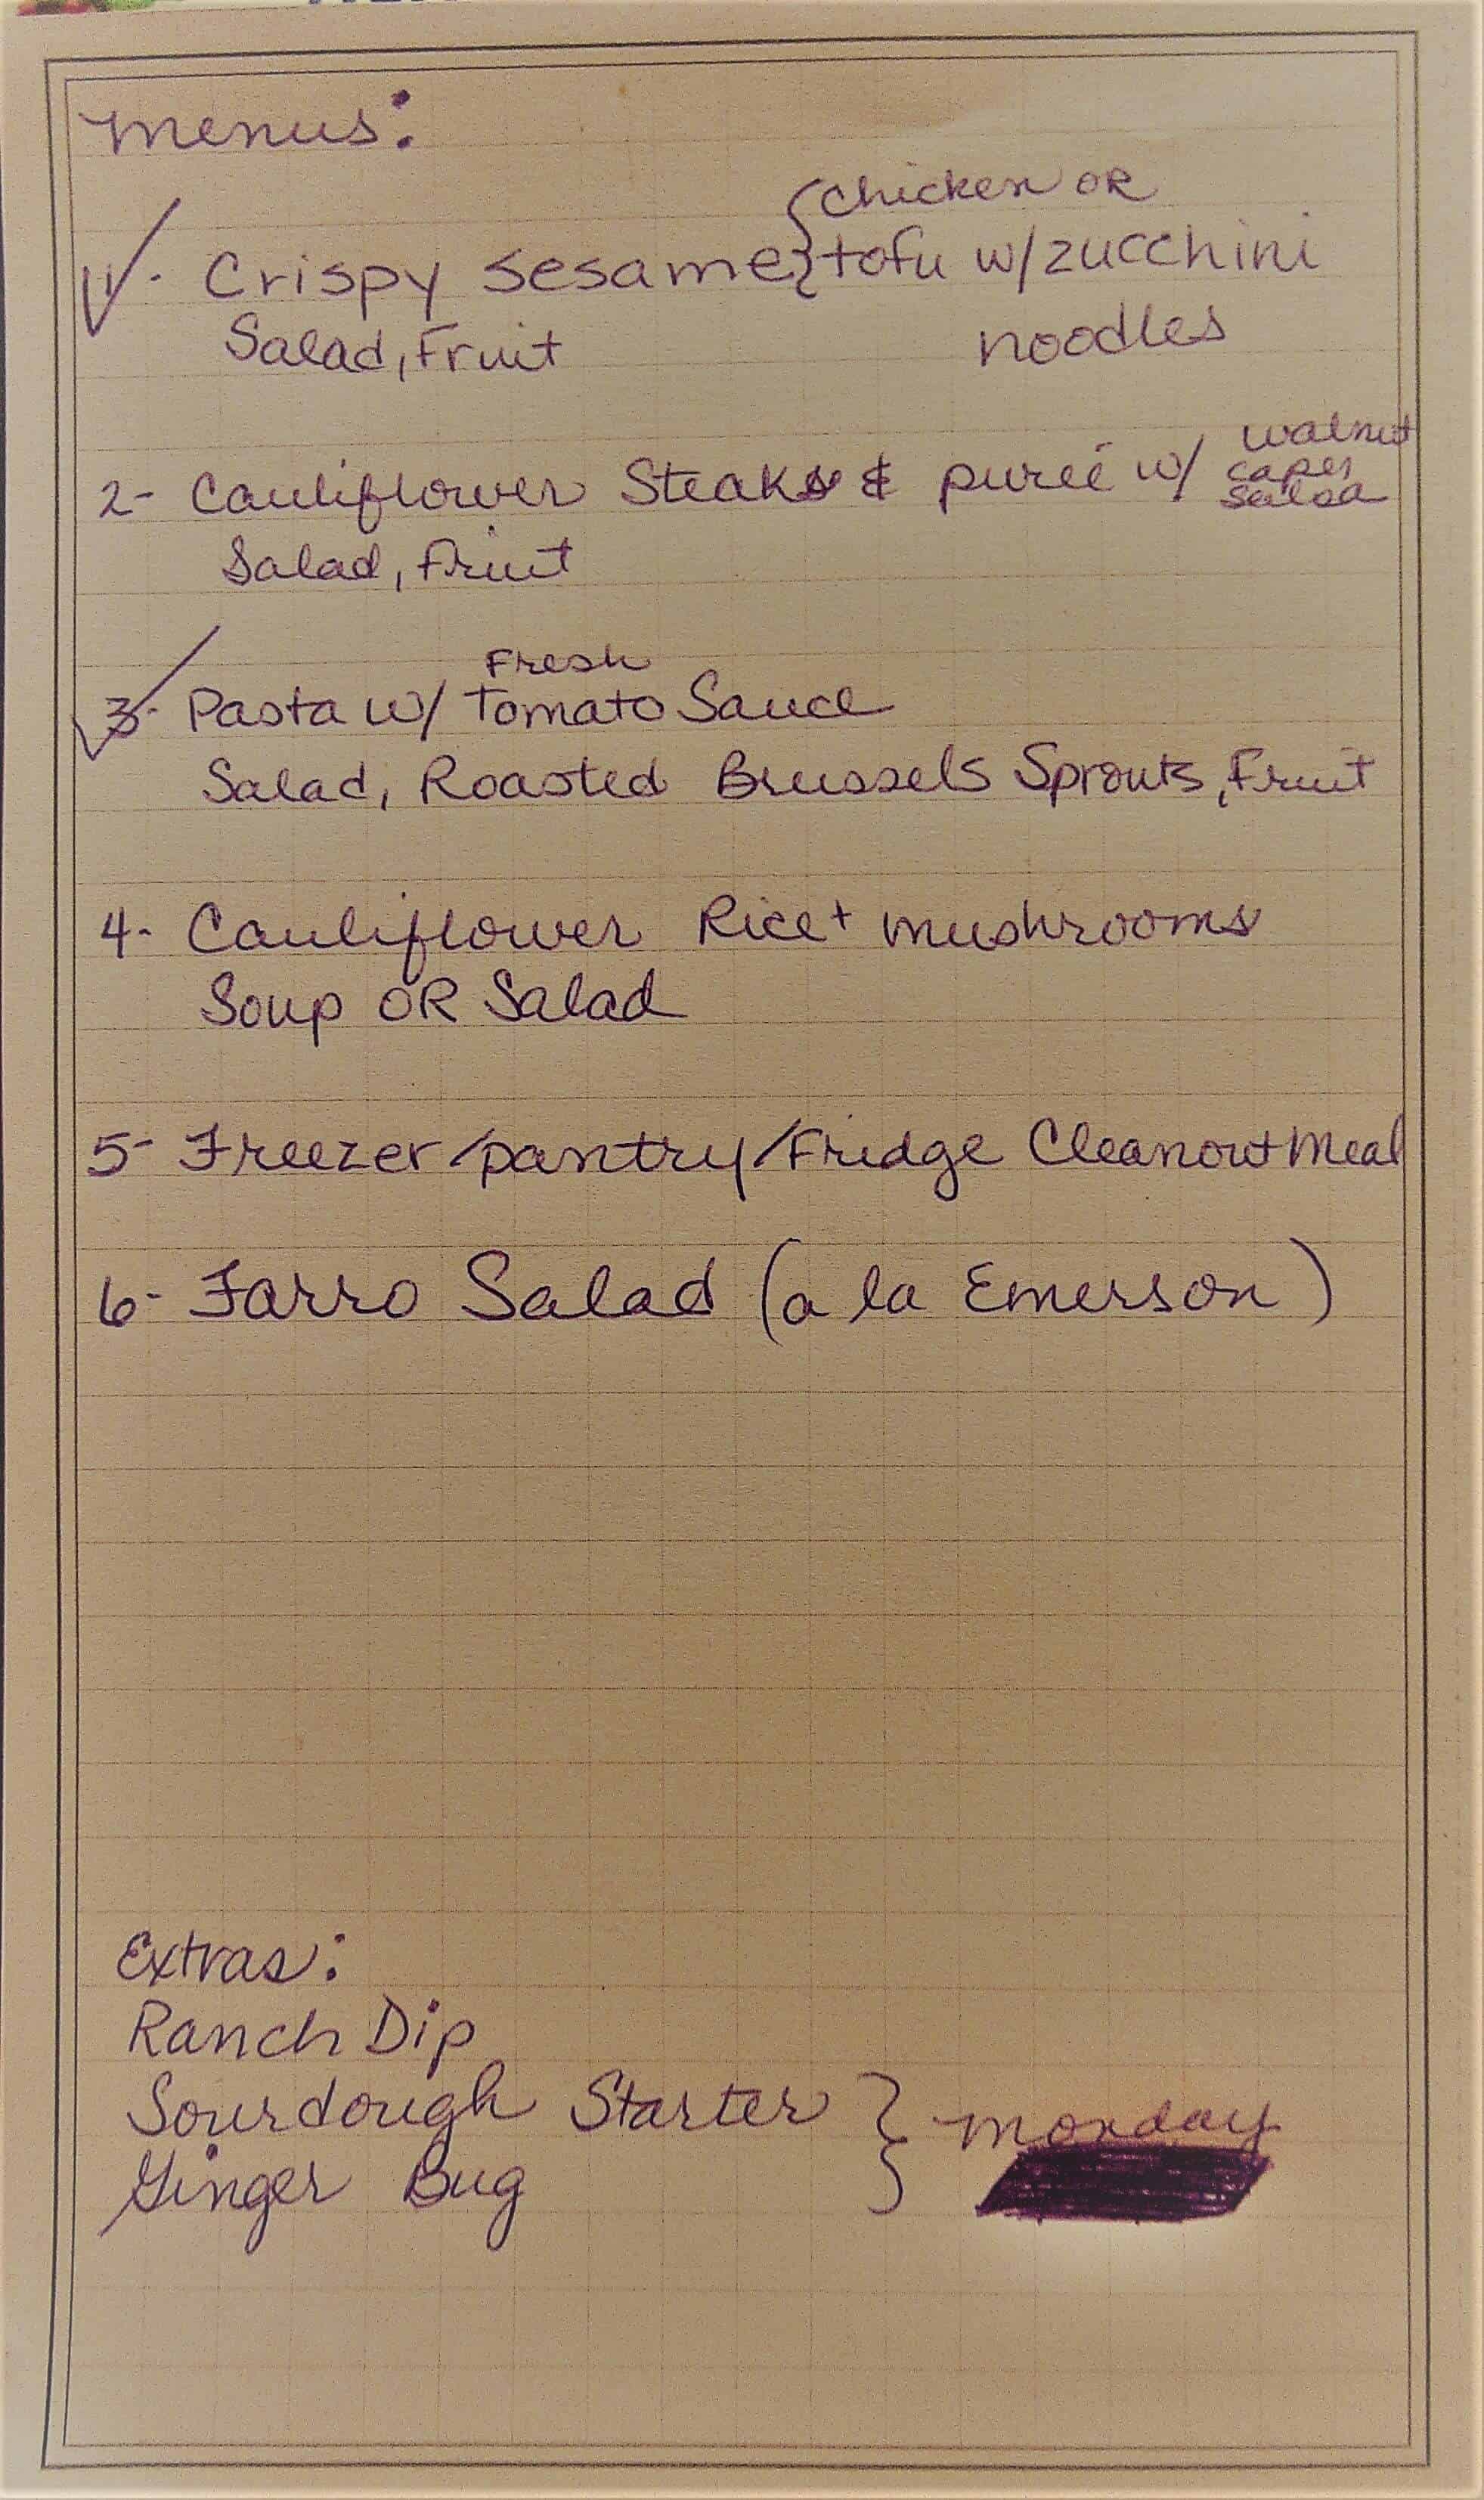 Menus:
1- Crispy Sesame { Chicken OR
tofu w/zucchini
noodles
Salad, Fruit
2- Cauliflower Steaks & pureé w/ walnut
caper
salsa
Salad, Fruit
3- Pasta w/ Fresh Tomato Sauce
Salad, Roasted Brussels Sprouts, Fruit
4- Cauliflower Rice + mushrooms
Soup OR Salad
5- Freezer/pantry/Fridge Cleanout Meal
6- Farro Salad (a la Emerson)
Extras:
Ranch Dip
Sourdough Starter } Monday
Ginger Bug